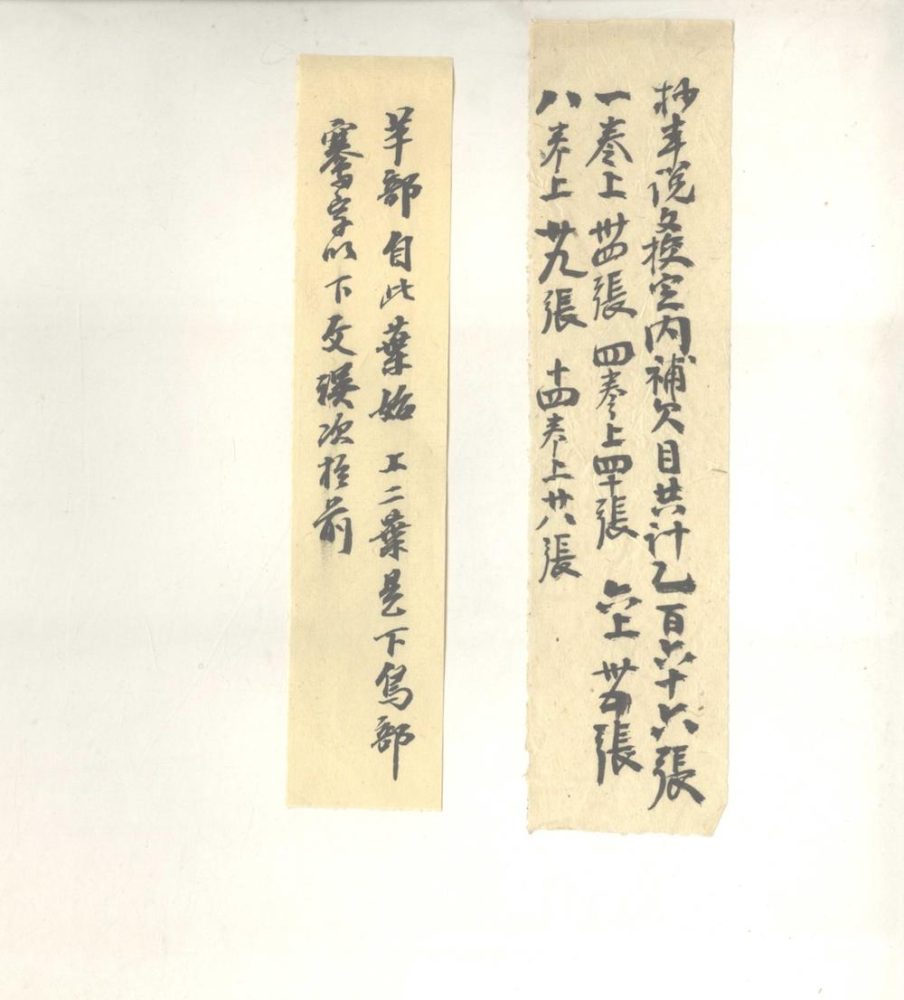 抄本説文換定内補欠目共計乙百六十六張
一卷上 卅四張 四卷上四十張 六上 卅五張
八卷上 卅九張 十四卷上廿八張
羊部自此葉始 上二葉是下鳥部
鶱字以下文誤次於前